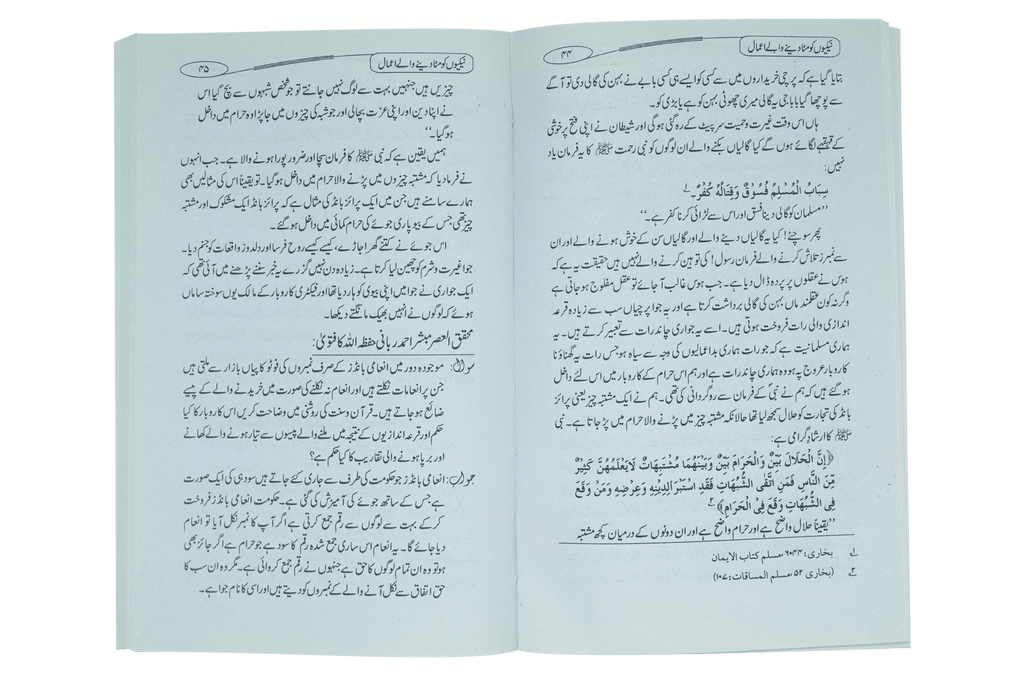 نیکیوں کو مٹا دینے والے اعمال
۴۴
بتایا گیا ہے کہ پرچی خریداروں میں سے کسی کو ایسے ہی کسی بابے نے بہن کی گالی دی تو آگے
سے پوچھا گیا بابا جی یہ گالی میری چھوٹی بہن کو ہے یا بڑی کو۔
ہاں اس وقت غیرت وحمیت سرپیٹ کے رہ گئی ہوگی اور شیطان نے اپنی فتح پر خوشی
کے قہقہے لگائے ہوں گے کیا گالیاں بکنے والے ان لوگوں کو نبی رحمت ﷺ کا یہ فرمان یاد
نہیں:
سِبَابُ الْمُسْلِمِ فُسُوْقٌ وَقِتَالُهٗ كُفْرٌ۔ ۱
’’مسلمان کو گالی دینا فسق اور اس سے لڑائی کرنا کفر ہے۔‘‘
پھر سوچئے! کیا یہ گالیاں دینے والے اور گالیاں سن کے خوش ہونے والے اور ان
سے نمبرز تلاش کرنے والے فرمان رسول! کی توہین کرنے والے نہیں ہیں حقیقت یہ ہے کہ
ہوس نے عقلوں پر پردہ ڈال دیا ہے۔ جب ہوس غالب آ جائے تو عقل مفلوج ہو جاتی ہے
وگرنہ کون عقلمند ماں بہن کی گالی برداشت کرتا ہے اور یہ جوا پرچیاں سب سے زیادہ قرعہ
اندازی والی رات فروخت ہوتی ہیں۔ اسے یہ جواری چاند رات سے تعبیر کرتے ہیں۔ یہ
ہماری مسلمانیت ہے کہ جو رات ہماری بداعمالیوں کی وجہ سے سیاہ ہو جس رات یہ گھناؤنا
کاروبار عروج پہ ہو وہ ہماری چاند رات ہے اور ہم اس حرام کے کاروبار میں اس لئے داخل
ہو گئے ہیں کہ ہم نے نبیؐ کے فرمان سے روگردانی کی تھی۔ ہم نے ایک مشتبہ چیز یعنی پرائز
بانڈ کی تجارت کو حلال سمجھ لیا تھا حالانکہ مشتبہ چیز میں پڑنے والا حرام میں پڑ جاتا ہے۔ نبی
ﷺ کا ارشاد گرامی ہے:
﴿إِنَّ الْحَلَالَ بَيِّنٌ وَالْحَرَامَ بَيِّنٌ وَبَيْنَهُمَا مُشْتَبِهَاتٌ لَايَعْلَمُهُنَّ كَثِيْرٌ
مِّنَ النَّاسِ فَمَنِ اتَّقَى الشُّبُهَاتِ فَقَدِ اسْتَبْرَالِدِيْنِهِ وَعِرْضِهِ وَمَنْ وَقَعَ
فِي الشُّبُهَاتِ وَقَعَ فِي الْحَرَامِ﴾ ۲
’’یقیناً حلال واضح ہے اور حرام واضح ہے اور ان دونوں کے درمیان کچھ مشتبہ
۱ بخاری: ۶۰۴۴، مسلم کتاب الایمان
۲ (بخاری ۵۲، مسلم المساقات: ۱۰۷)
نیکیوں کو مٹا دینے والے اعمال
۴۵
چیزیں ہیں جنہیں بہت سے لوگ نہیں جانتے تو جو شخص شبہوں سے بچ گیا اس
نے اپنا دین اور اپنی عزت بچالی اور جو شبہ کی چیزوں میں جا پڑا وہ حرام میں داخل
ہو گیا۔‘‘
ہمیں یقین ہے کہ نبی ﷺ کا فرمان سچا اور ضرور پورا ہونے والا ہے۔ جب انہوں
نے فرما دیا کہ مشتبہ چیزوں میں پڑنے والا حرام میں داخل ہو گیا۔ تو یقیناً اس کی مثالیں بھی
ہمارے سامنے ہیں جن میں ایک پرائز بانڈ کی مثال ہے کہ پرائز بانڈ ایک مشکوک اور مشتبہ
چیز تھی جس کے بیوپاری جوئے کی حرام کمائی میں داخل ہو گئے۔
اس جوئے نے کتنے گھر اجاڑے، کیسے کیسے روح فرسا اور دلدوز واقعات کو جنم دیا۔
جوا غیرت وشرم کو چھین لیا کرتا ہے۔ زیادہ دن نہیں گزرے یہ خبر سننے پڑھنے میں آئی تھی کہ
ایک جواری نے جوا میں اپنی بیوی کو ہار دیا تھا اور فیکٹری کاروبار کے مالک یوں سوختہ ساماں
ہوئے کہ لوگوں نے انہیں بھیک مانگتے دیکھا۔
محقق العصر مبشر احمد ربانی حفظہ اللہ کا فتویٰ:
سوال: موجودہ دور میں انعامی بانڈز کے صرف نمبروں کی فوٹو کاپیاں بازار سے ملتی ہیں
جن پر انعامات نکلتے ہیں اور انعام نہ نکلنے کی صورت میں خریدنے والے کے پیسے
ضائع ہو جاتے ہیں۔ قرآن وسنت کی روشنی میں وضاحت کریں اس کاروبار کا کیا
حکم اور قرعہ اندازیوں کے نتیجہ میں ملنے والے پیسوں سے تیار ہونے والے کھانے
اور برپا ہونے والی تقاریب کا کیا حکم ہے؟
جواب: انعامی بانڈز جو حکومت کی طرف سے جاری کئے جاتے ہیں سود ہی کی ایک صورت
ہے جس کے ساتھ جوئے کی آمیزش کی گئی ہے۔ حکومت انعامی بانڈز فروخت
کر کے بہت سے لوگوں سے رقم جمع کرتی ہے اگر آپ کا نمبر نکل آیا تو انعام
دیا جائے گا۔ یہ انعام اس ساری جمع شدہ رقم کا سود ہے جو حرام ہے اگر جائز بھی
ہو تو وہ ان تمام لوگوں کا حق ہے جنہوں نے رقم جمع کروائی ہے۔ مگر وہ ان سب کا
حق اتفاق سے نکل آنے والے کے نمبروں کو دیتے ہیں اور اسی کا نام جوا ہے۔